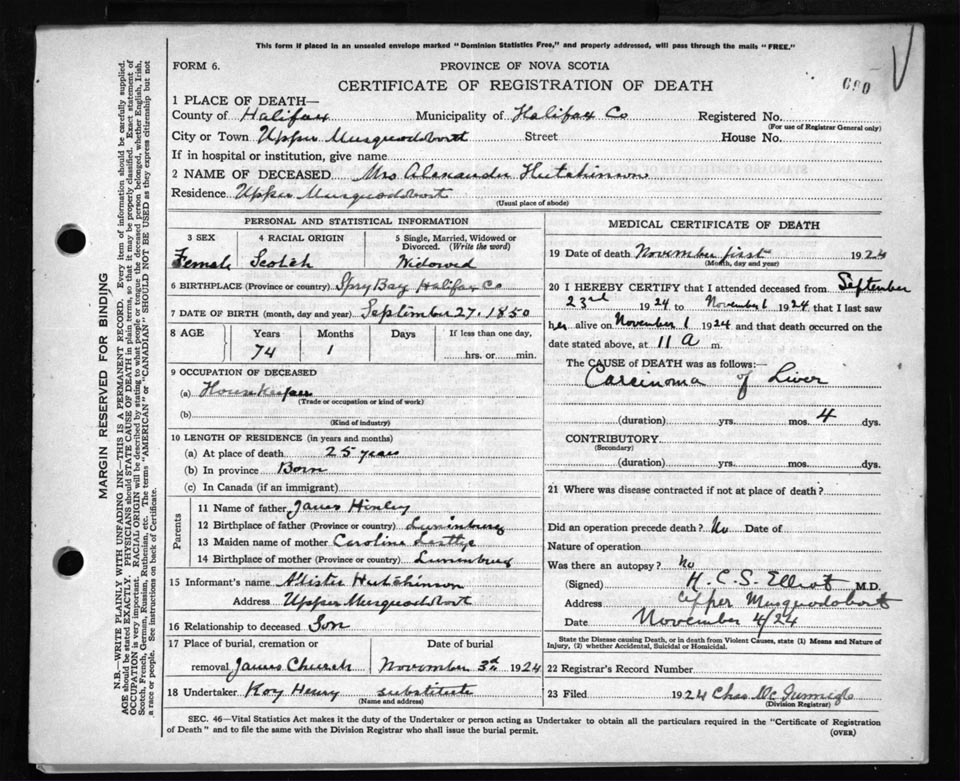 This form if placed in an unsealed envelope marked "Dominion Statistics Free," and properly addressed, will pass through the mails "FREE."
FORM 6.
PROVINCE OF NOVA SCOTIA
CERTIFICATE OF REGISTRATION OF DEATH
690
1 PLACE OF DEATH—
County of Halifax Municipality of Halifax Co Registered No.
(For use of Registrar General only)
City or Town Upper Musquodoboit Street House No.
If in hospital or institution, give name
2 NAME OF DECEASED Mrs Alexander Hutchinson
Residence Upper Musquodoboit
(Usual place of abode)
PERSONAL AND STATISTICAL INFORMATION
3 SEX 4 RACIAL ORIGIN 5 Single, Married, Widowed or Divorced. (Write the word)
Female Scotch Widowed
6 BIRTHPLACE (Province or country) Spry Bay Halifax Co
7 DATE OF BIRTH (month, day and year) September 27, 1850
8 AGE Years Months Days If less than one day,
74 1 hrs. or min.
9 OCCUPATION OF DECEASED
(a) Housekeeper
(Trade or occupation or kind of work)
(b)
(Kind of industry)
10 LENGTH OF RESIDENCE (in years and months)
(a) At place of death 25 years
(b) In province Born
(c) In Canada (if an immigrant)
Parents
11 Name of father James
12 Birthplace of father (Province or country) Lunenburg
13 Maiden name of mother Caroline
14 Birthplace of mother (Province or country) Lunenburg
15 Informant's name Allister Hutchinson
Address Upper Musquodoboit
16 Relationship to deceased Son
17 Place of burial, cremation or Date of burial
removal James Church November 3rd 1924
18 Undertaker Roy Henry substitute
(Name and address)
MEDICAL CERTIFICATE OF DEATH
19 Date of death November first 1924
(Month, day and year)
20 I HEREBY CERTIFY that I attended deceased from September
23rd 1924 to November 1 1924 that I last saw
her alive on November 1 1924 and that death occurred on the
date stated above, at 11 a m.
The CAUSE OF DEATH was as follows:—
Carcinoma of Liver
(duration) yrs. mos. 4 dys.
CONTRIBUTORY
(Secondary)
(duration) yrs. mos. dys.
21 Where was disease contracted if not at place of death?
Did an operation precede death? No Date of
Nature of operation
Was there an autopsy? No
(Signed) H. C. S. Elliot M.D.
Address Upper Musquodoboit
Date November 4/24
State the Disease causing Death, or in death from Violent Causes, state (1) Means and Nature of
Injury, (2) whether Accidental, Suicidal or Homicidal.
22 Registrar's Record Number
23 Filed 1924 Chas
(Division Registrar)
SEC. 46—Vital Statistics Act makes it the duty of the Undertaker or person acting as Undertaker to obtain all the particulars required in the "Certificate of Registration
of Death" and to file the same with the Division Registrar who shall issue the burial permit.
(OVER)
MARGIN RESERVED FOR BINDING
N.B.—WRITE PLAINLY WITH UNFADING INK—THIS IS A PERMANENT RECORD. Every item of information should be carefully supplied.
AGE should be stated EXACTLY. PHYSICIANS should STATE CAUSE OF DEATH in plain terms, so that it may be properly classified. Exact statement of
OCCUPATION is very important. RACIAL ORIGIN will be described by stating to what people or tongue the deceased person belonged, whether English, Irish,
Scotch, French, German, Russian, Ruthenian, etc. The terms "AMERICAN" or "CANADIAN" SHOULD NOT BE USED as they express citizenship but not
a race or people. See instructions on back of Certificate.